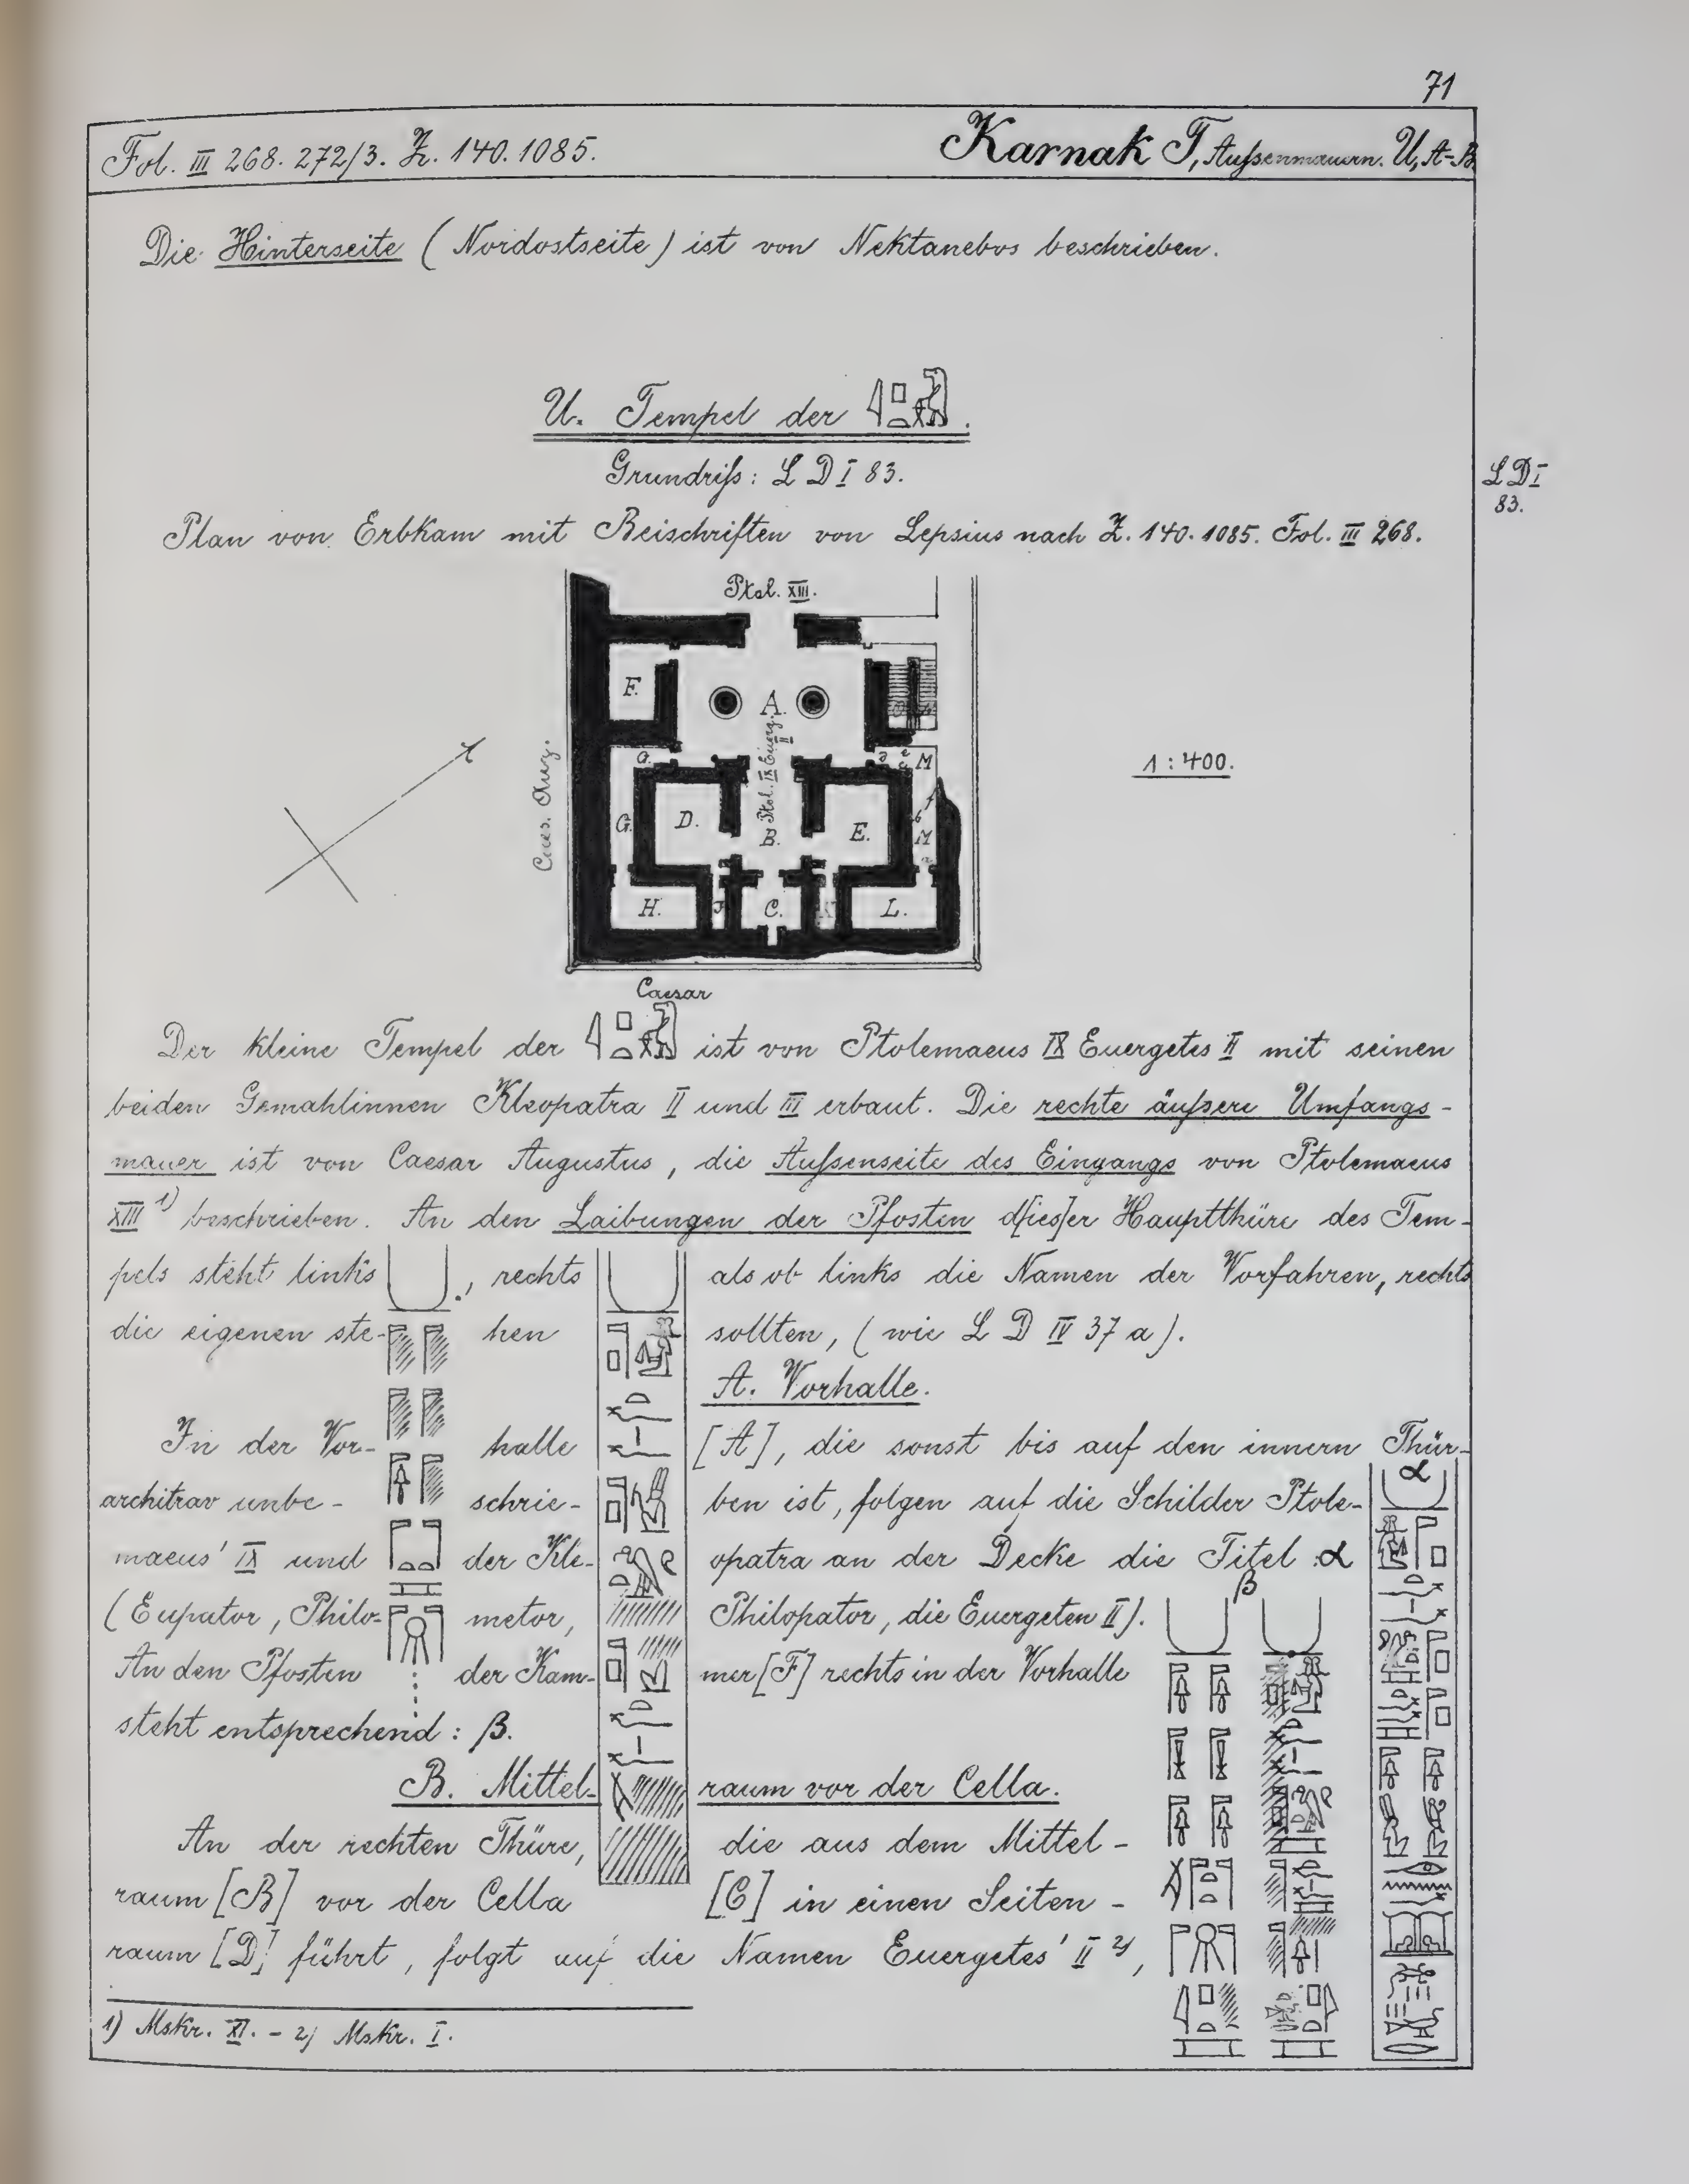 71
Fol. III 268. 272/3. Z. 140. 1085.
Karnak T, Aufsenmauern. U, A-B
Die Hinterseite (Nordostseite) ist von Nektanebos beschrieben.
U. Tempel der
Grundrifs: L D I 83.
L D I
83.
Plan von Erbkam mit Beischriften von Lepsius nach Z. 140. 1085. Fol. III 268.
Ptol. XIII.
F.
A.
Ptol. IX Euerg. II
G.
M
G.
D.
B.
E.
M
H.
J
C.
K
L.
Caes. Aug.
1 : 400.
Caesar
Der kleine Tempel der ist von Ptolemaeus IX Euergetes II mit seinen
beiden Gemahlinnen Kleopatra II und III erbaut. Die rechte äufsere Umfangs-
mauer ist von Caesar Augustus, die Aufsenseite des Eingangs von Ptolemaeus
XIII 1) beschrieben. An den Laibungen der Pfosten d[ies]er Hauptthüre des Tem-
pels steht links , rechts als ob links die Namen der Vorfahren, rechts
die eigenen ste- hen sollten, (wie L D IV 37 a).
A. Vorhalle.
In der Vor- halle [A], die sonst bis auf den innern Thür-
architrav unbe- schrie- ben ist, folgen auf die Schilder Ptole-
maeus' IX und der Kle- opatra an der Decke die Titel α
(Eupator, Philo- metor, Philopator, die Euergeten II).
An den Pfosten der Kam- mer [F] rechts in der Vorhalle
steht entsprechend : β.
α
β
B. Mittel- raum vor der Cella.
An der rechten Thüre, die aus dem Mittel-
raum [B] vor der Cella [C] in einen Seiten-
raum [D] führt, folgt auf die Namen Euergetes' II 2),
1) Mskr. XI. - 2) Mskr. I.